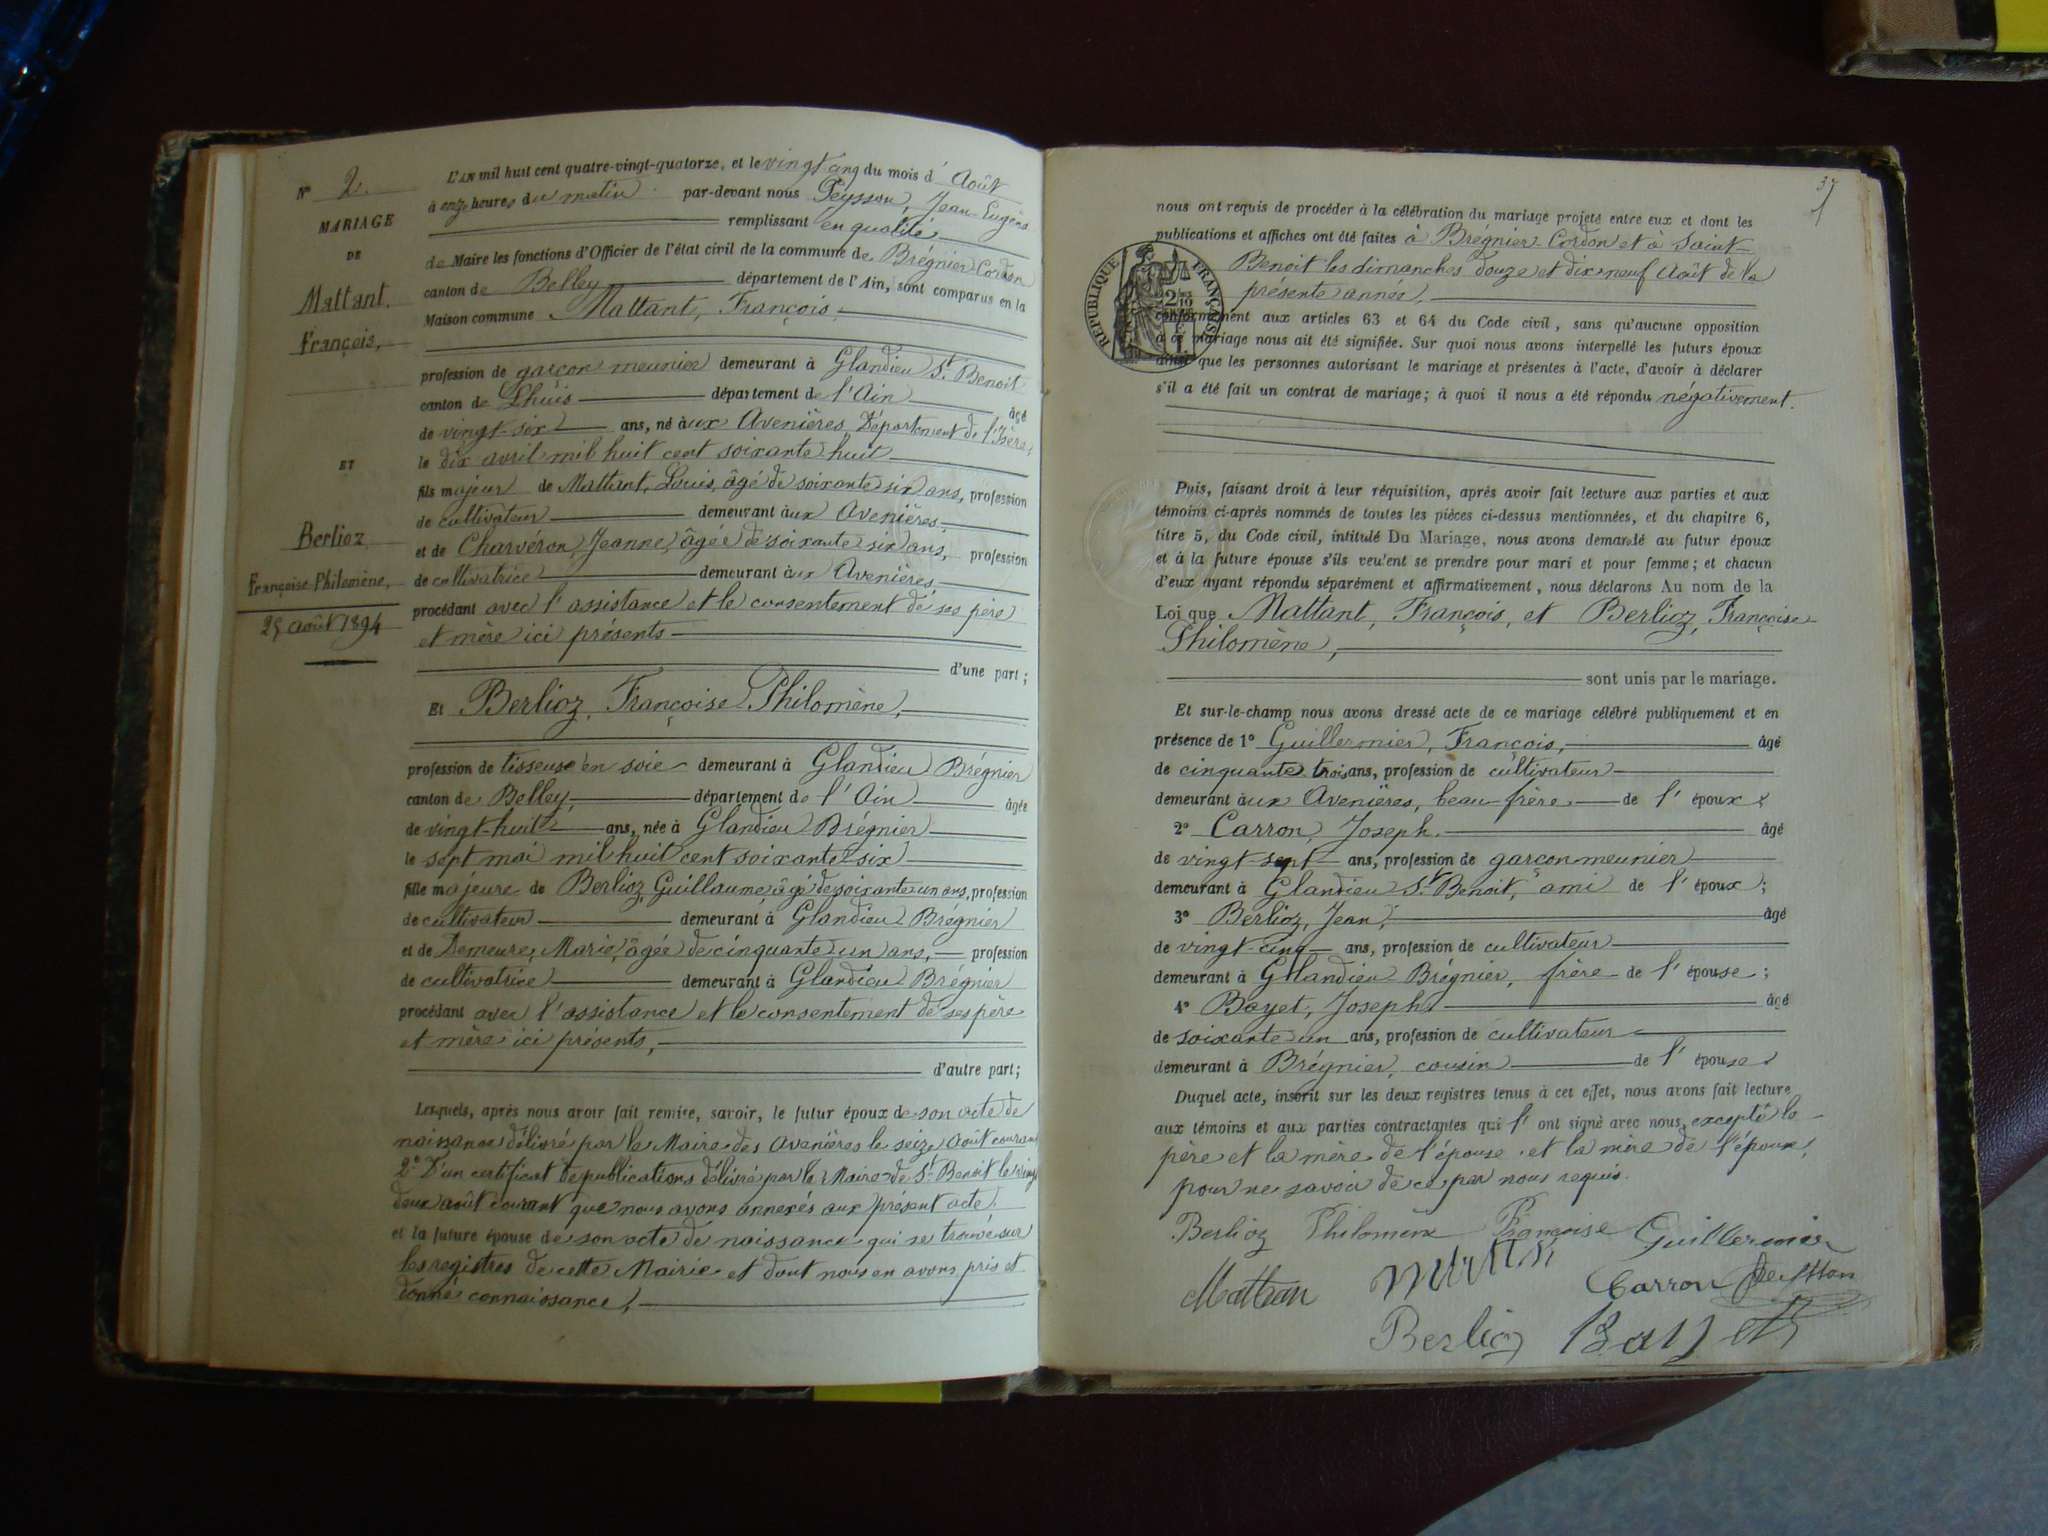 N° 2.
MARIAGE
DE
Mattant.
François,
ET
Berlioz
Françoise-Philomène,
25 août 1894
L'AN mil huit cent quatre-vingt-quatorze, et le vingt-cinq du mois d'Août
à onze heures du matin par-devant nous Peysson, Jean-Eugène
remplissant en qualité
de Maire les fonctions d'Officier de l'état civil de la commune de Brégnier-Cordon
canton de Belley département de l'Ain, sont comparus en la
Maison commune Mattant, François,
profession de garçon meunier demeurant à Glandieu St. Benoit
canton de Lhuis département de l'Ain âgé
de vingt-six ans, né aux Avenières, Département de l'Isère,
le dix avril mil huit cent soixante huit
fils majeur de Mattant, Louis, âgé de soixante six ans, profession
de cultivateur demeurant aux Avenières
et de Charvéron, Jeanne, âgée de soixante six ans, profession
de cultivatrice demeurant aux Avenières
procédant avec l'assistance et le consentement de ses père
et mère ici présents
d'une part;
Et Berlioz, Françoise Philomène,
profession de tisseuse en soie demeurant à Glandieu Brégnier
canton de Belley, département de l'Ain âgée
de vingt-huit ans, née à Glandieu Brégnier
le sept mai mil huit cent soixante six
fille majeure de Berlioz Guillaume, âgé de soixante un ans, profession
de cultivateur demeurant à Glandieu Brégnier
et de Demeure, Marie, âgée de cinquante un ans, profession
de cultivatrice demeurant à Glandieu Brégnier
procédant avec l'assistance et le consentement de ses père
et mère ici présents,
d'autre part;
Lesquels, après nous avoir fait remise, savoir, le futur époux de son acte de
naissance délivré par le Maire des Avenières le seize Août courant
2° D'un certificat de publications délivré par le Maire de St. Benoit le vingt
deux août courant que nous avons annexés aux présent acte,
et la future épouse de son acte de naissance qui se trouve sur
les registres de cette Mairie et dont nous en avons pris et
donné connaissance,
37
nous ont requis de procéder à la célébration du mariage projeté entre eux et dont les
publications et affiches ont été faites à Brégnier Cordon et à Saint
Benoit les dimanches douze et dix-neuf Août de la
présente année,
RÉPUBLIQUE FRANÇAISE
conformément aux articles 63 et 64 du Code civil, sans qu'aucune opposition
à ce mariage nous ait été signifiée. Sur quoi nous avons interpellé les futurs époux
ainsi que les personnes autorisant le mariage et présentes à l'acte, d'avoir à déclarer
s'il a été fait un contrat de mariage; à quoi il nous a été répondu négativement.
Puis, faisant droit à leur réquisition, après avoir fait lecture aux parties et aux
témoins ci-après nommés de toutes les pièces ci-dessus mentionnées, et du chapitre 6,
titre 5, du Code civil, intitulé Du Mariage, nous avons demandé au futur époux
et à la future épouse s'ils veulent se prendre pour mari et pour femme; et chacun
d'eux ayant répondu séparément et affirmativement, nous déclarons Au nom de la
Loi que Mattant, François, et Berlioz, Françoise
Philomène,
sont unis par le mariage.
Et sur-le-champ nous avons dressé acte de ce mariage célébré publiquement et en
présence de 1° Guillermier, François, âgé
de cinquante trois ans, profession de cultivateur
demeurant aux Avenières, beau-frère de l'époux;
2° Carron, Joseph. âgé
de vingt-sept ans, profession de garçon-meunier
demeurant à Glandieu St. Benoit, ami de l'époux;
3° Berlioz, Jean, âgé
de vingt-cinq ans, profession de cultivateur
demeurant à Glandieu Brégnier, frère de l'épouse;
4° Bayet, Joseph. âgé
de soixante un ans, profession de cultivateur
demeurant à Brégnier, cousin de l'épouse.
Duquel acte, inscrit sur les deux registres tenus à cet effet, nous avons fait lecture
aux témoins et aux parties contractantes qui l'ont signé avec nous, excepté le
père et la mère de l'épouse et la mère de l'époux,
pour ne savoir de ce par nous requis.
Berlioz Philomène Françoise Guillermier
Mattan Carron Peysson
Berlioz